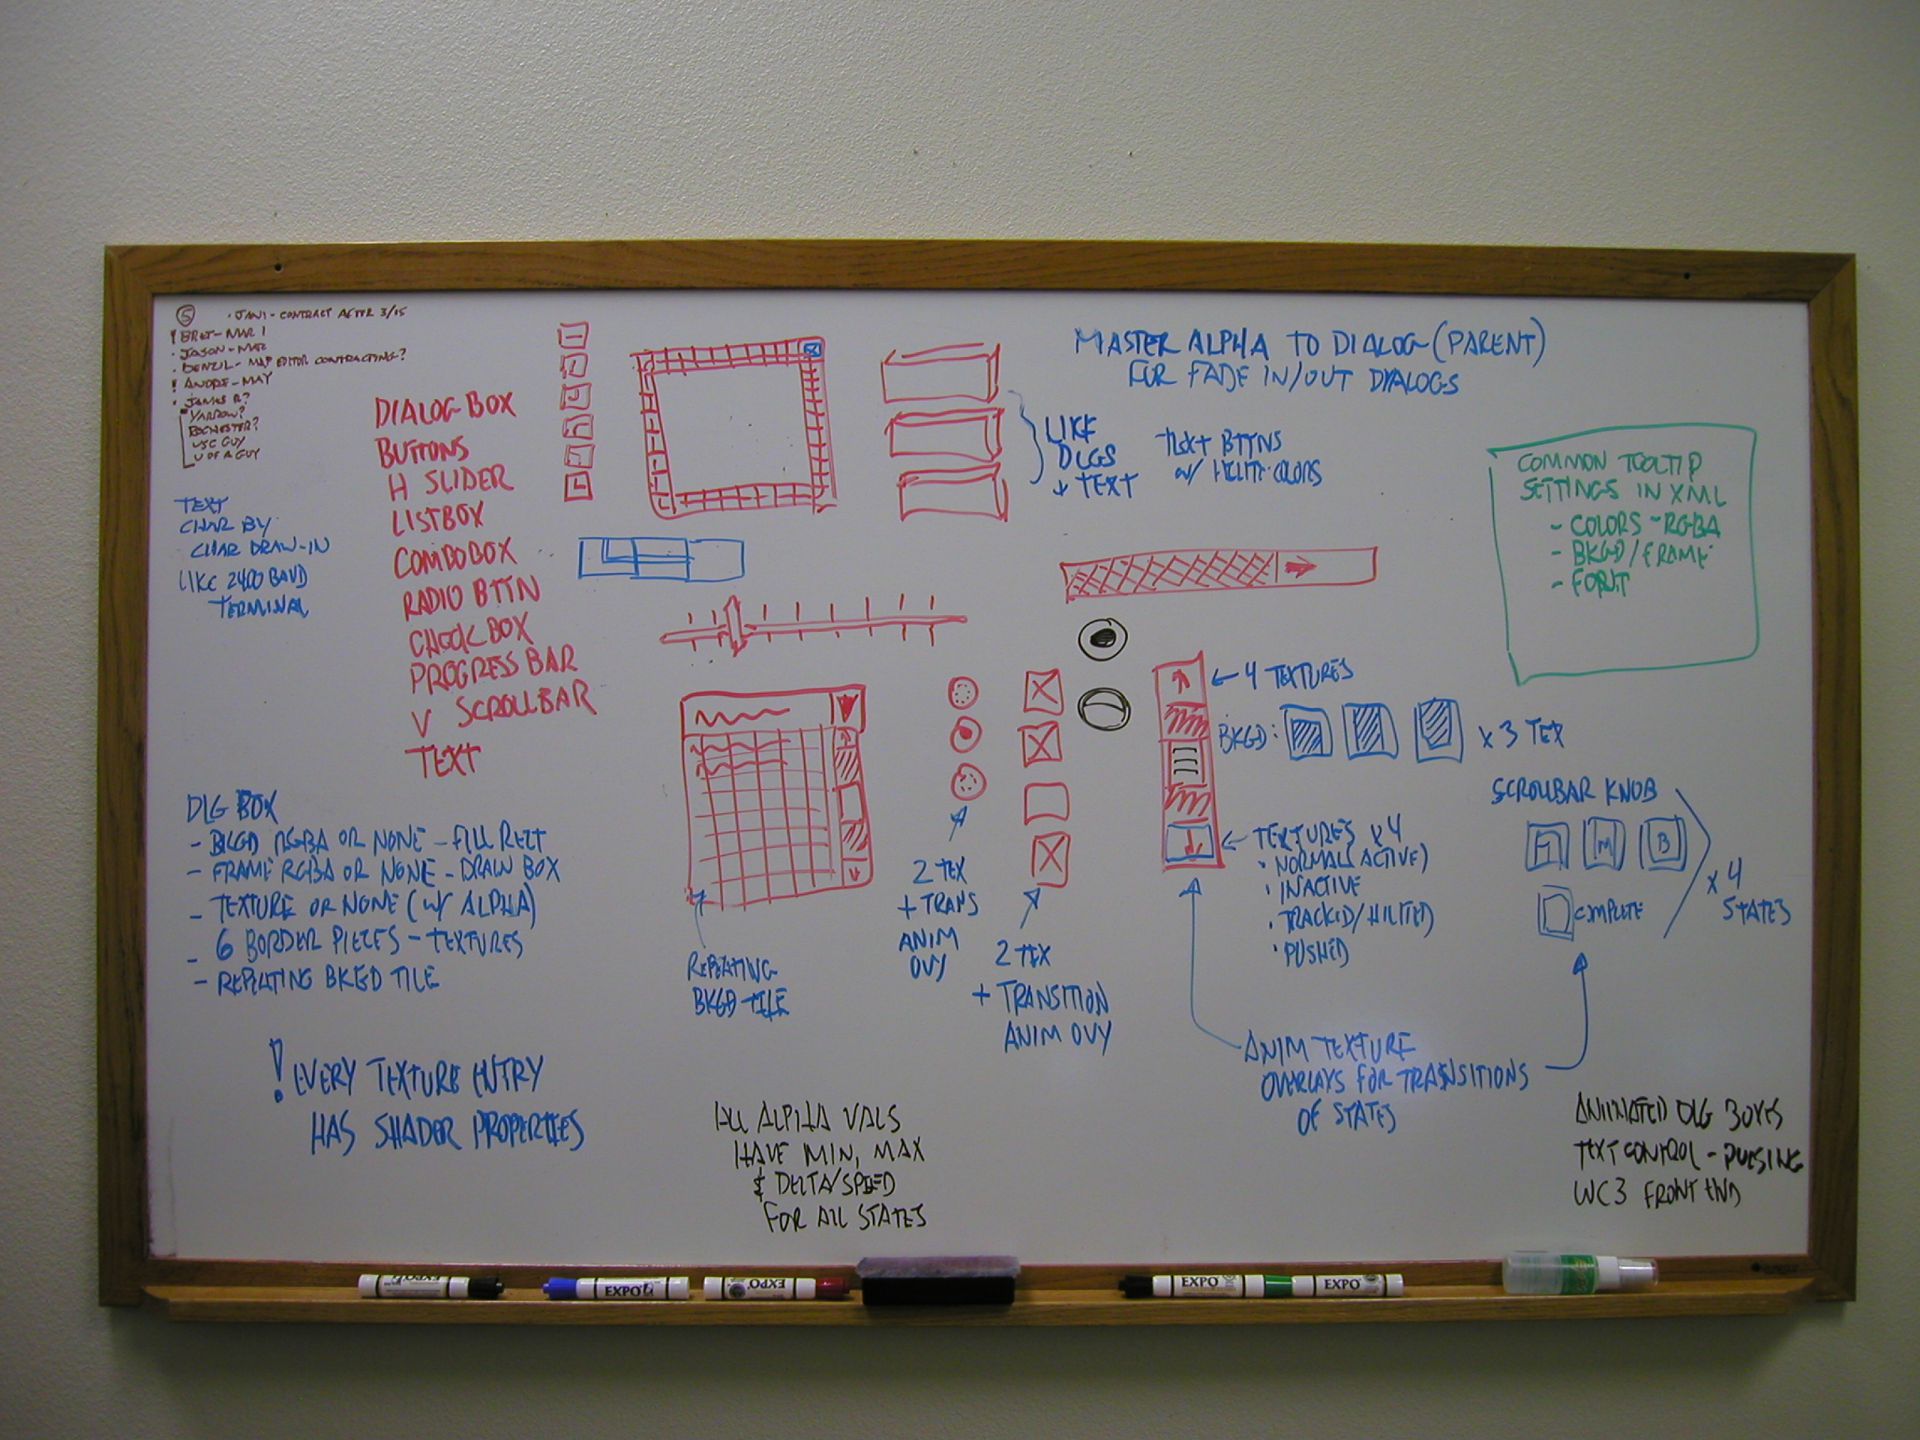 5 · JANI - CONTRACT AFTER 3/15
! BRET - MAR 1
· JASON - MAR
· DENZIL - MAP EDITOR CONTRACTING?
! ANDRE - MAY
· JAMES R?
YARROW?
ROCHESTER?
USC GUY
U OF A GUY
TEXT
CHAR BY
CHAR DRAW-IN
LIKE 2400 BAUD
TERMINAL
DIALOG BOX
BUTTONS
H SLIDER
LISTBOX
COMBOBOX
RADIO BTTN
CHECK BOX
PROGRESS BAR
V SCROLLBAR
TEXT
MASTER ALPHA TO DIALOG (PARENT)
FOR FADE IN/OUT DYALOGS
LIKE
DLGS
+ TEXT
TEXT BTTNS
w/ HILITE COLORS
COMMON TOOLTIP
SETTINGS IN XML
- COLORS - RGBA
- BKGD/FRAME
- FONT
← 4 TEXTURES
BKGD:
x 3 TEX
SCROLLBAR KNOB
T M B
COMPLETE
x 4
STATES
← TEXTURES x4
· NORMAL (ACTIVE)
· INACTIVE
· TRACKED/HILITED
· PUSHED
DLG BOX
- BKGD RGBA OR NONE - FILL RECT
- FRAME RGBA OR NONE - DRAW BOX
- TEXTURE OR NONE (W/ ALPHA)
- 6 BORDER PIECES - TEXTURES
- REPEATING BKGD TILE
REPEATING
BKGD TILE
2 TEX
+ TRANS
ANIM
OVY
2 TEX
+ TRANSITION
ANIM OVY
ANIM TEXTURE
OVERLAYS FOR TRANSITIONS
OF STATES
! EVERY TEXTURE ENTRY
HAS SHADER PROPERTIES
ALL ALPHA VALS
HAVE MIN, MAX
& DELTA/SPEED
FOR ALL STATES
ANIMATED DLG BOXES
TEXT CONTROL - PULSING
WC3 FRONT END
EXPO
EXPO
EXPO
EXPO
EXPO